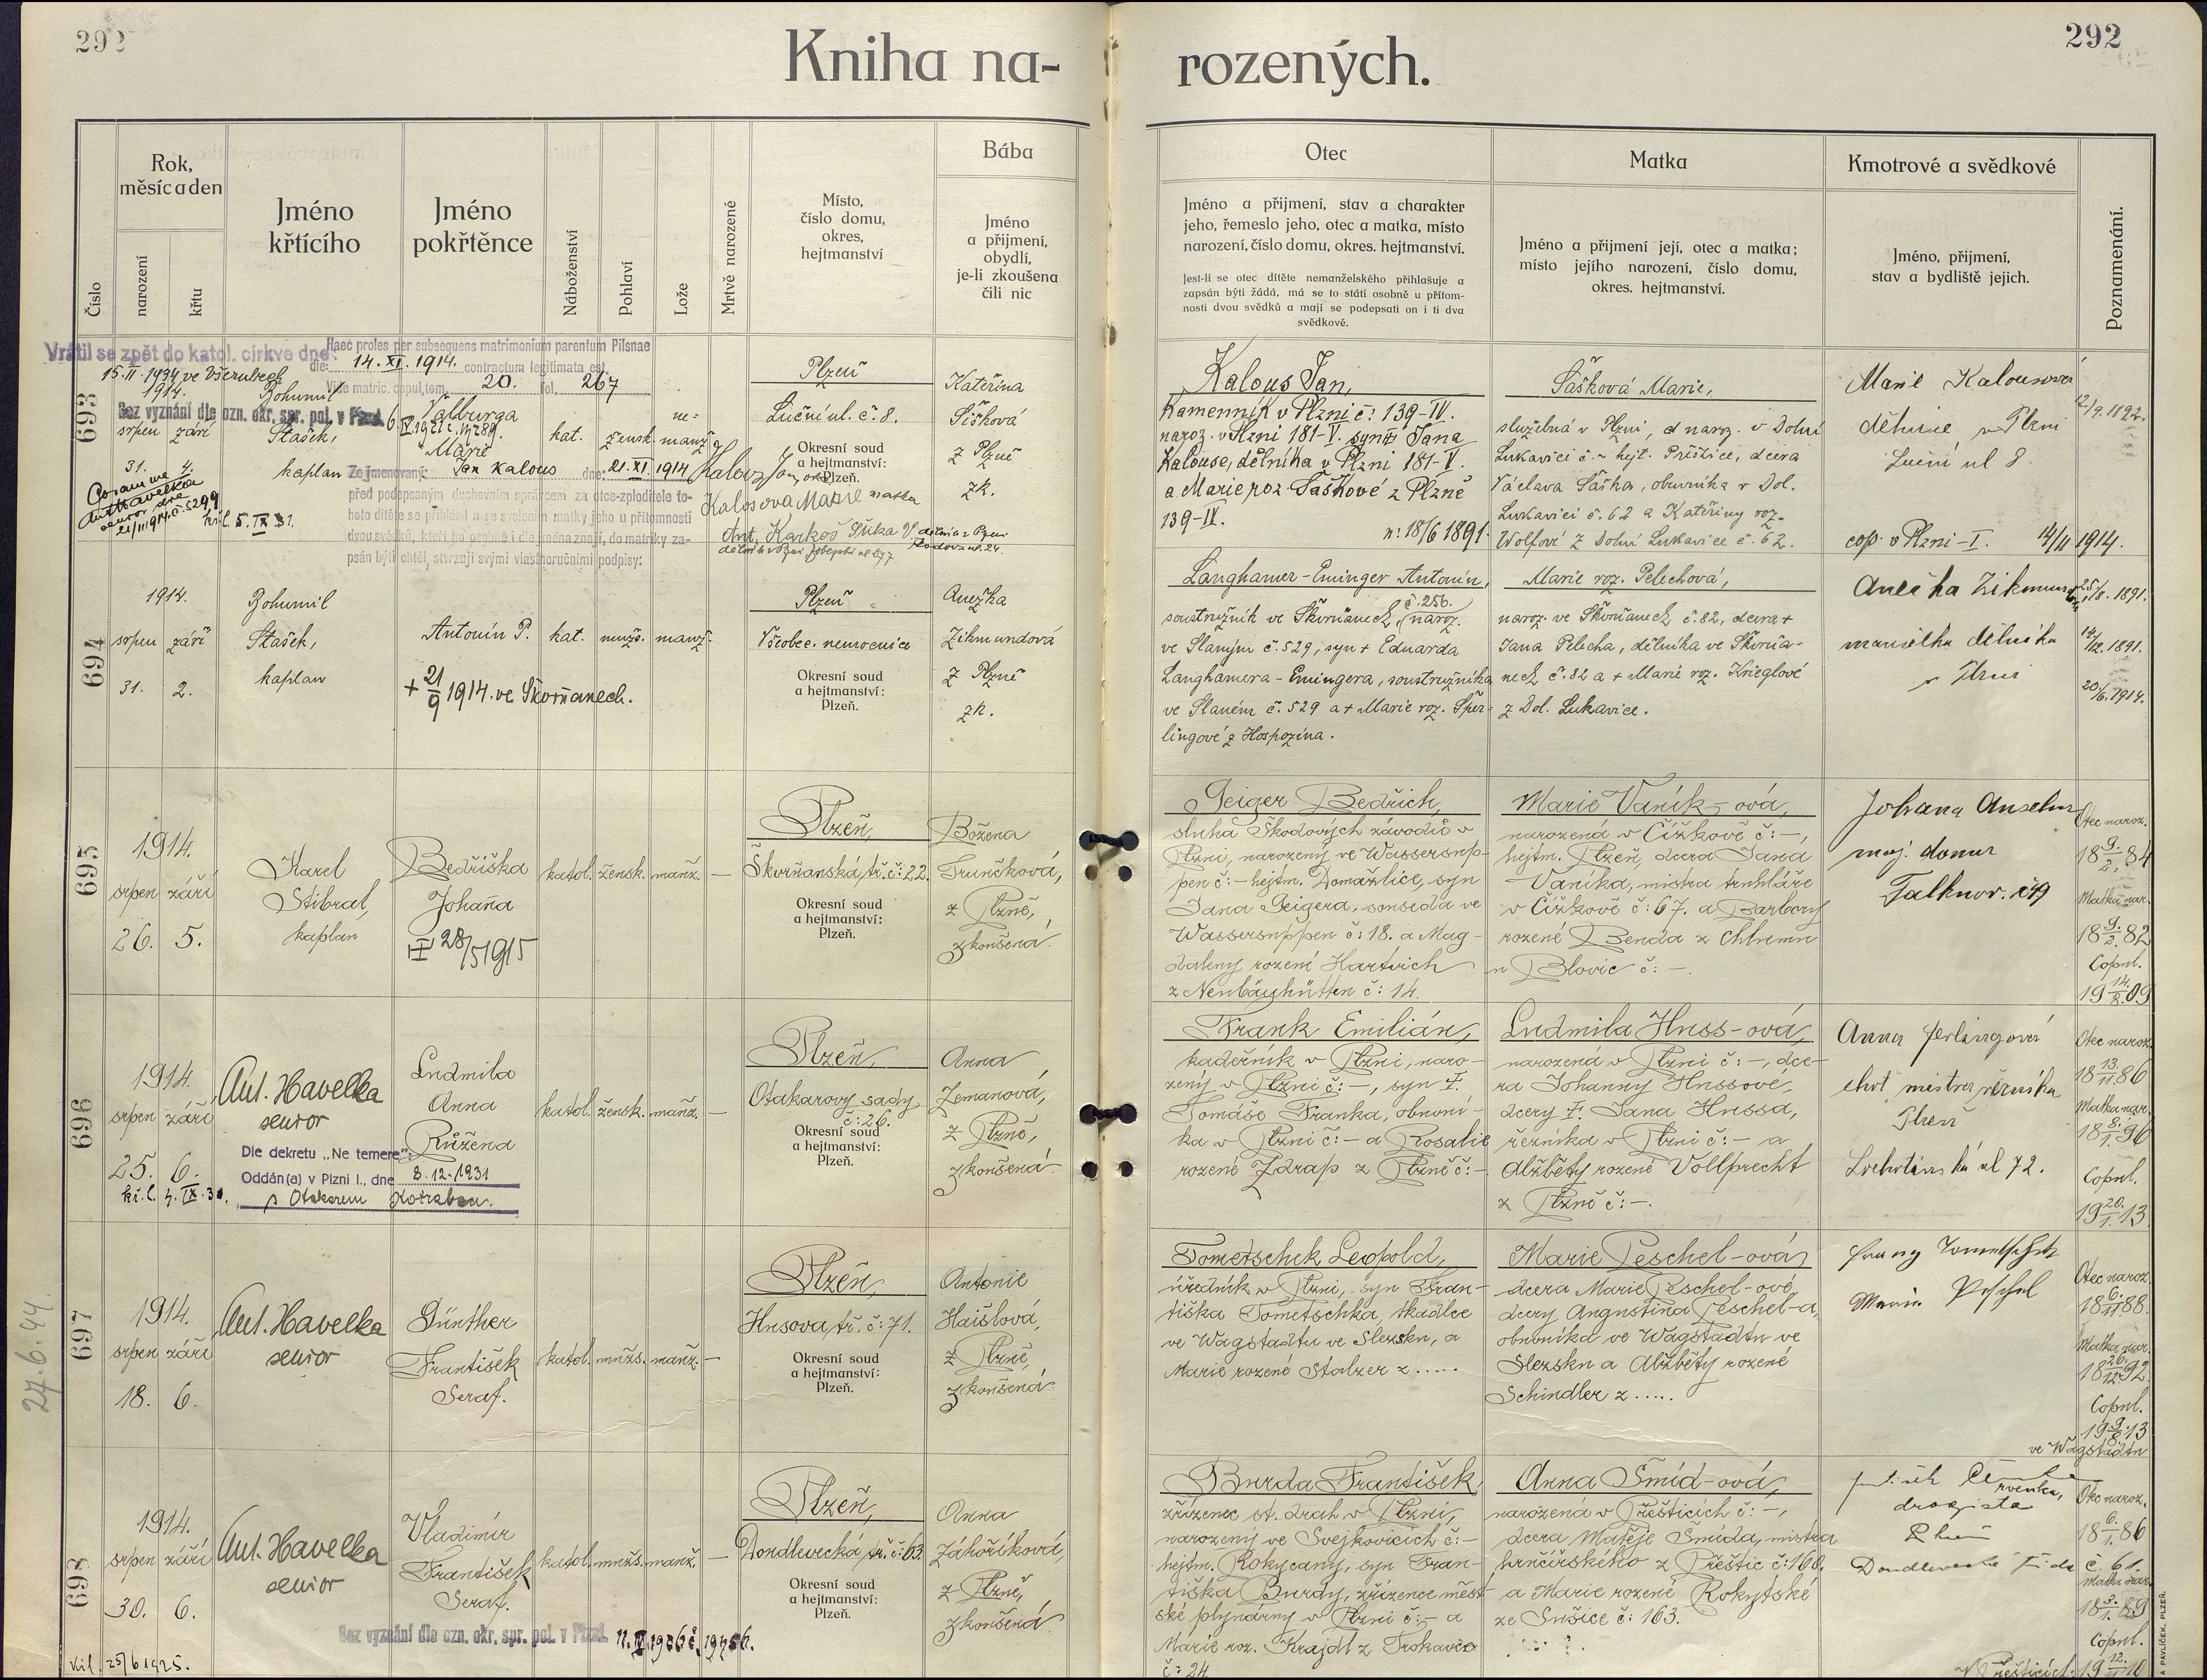 292
292
Kniha na-
rozených.
Číslo
Rok,
měsíc a den
narození
křtu
Jméno
křtícího
Jméno
pokřtěnce
Náboženství
Pohlaví
Lože
Mrtvě narozené
Místo,
číslo domu,
okres,
hejtmanství
Bába
Jméno
a přijmení,
obydlí,
je-li zkoušena
čili nic
Otec
Jméno a přijmení, stav a charakter
jeho, řemeslo jeho, otec a matka, místo
narození, číslo domu, okres. hejtmanství.
Jest-li se otec dítěte nemanželského přihlašuje a
zapsán býti žádá, má se to státi osobně u přítom-
nosti dvou svědků a mají se podepsati on i ti dva
svědkové.
Matka
Jméno a přijmení její, otec a matka;
místo jejího narození, číslo domu,
okres. hejtmanství.
Kmotrové a svědkové
Jméno, přijmení,
stav a bydliště jejich.
Poznamenání.
693
Vrátil se zpět do katol. církve dne:
15.II.1934 ve Všerubech
Haec proles per subsequens matrimonium parentum Pilsnae
die: 14. XI. 1914. contractum legitimata est.
Vide matric. copul. tom. 20. fol. 267
1914.
Bez vyznání dle ozn. okr. spr. pol. v Plzni.
srpen září
31. 4.
Bohumil
Stašek,
kaplan
Valburga
Marie
kat.
žensk.
ne-
manž.
Ze jmenovaný: Jan Kalous dne: 21. XI. 1914
před podepsaným duchovním správcem za otce-zploditele to-
hoto dítěte se přihlásil a se svolením matky jeho u přítomnosti
dvou svědků, kteří ho osobně i dle jména znají, do matriky za-
psán býti chtěl, stvrzují svými vlastnoručními podpisy:
křl. 5. IX 31.
Plzeň
Luční ul. č. 8.
Okresní soud
a hejtmanství:
Plzeň.
Kalous Jan, otec
Kalosova Marie matka
Ant. Karkoš
Kateřina
Šišková
z Plzně
zk.
Kalous Jan,
Kamenník v Plzni č: 139-IV.
naroz. v Plzni 181-V. syn Jana
Kalouse, dělníka v Plzni 181-V.
a Marie roz. Šaškové z Plzně
139-IV.
n: 18/6 1891.
Šašková Marie,
služebná v Plzni, naroz. v Dolní
Lukavici č. - hejt. Přeštice, dcera
Václava Šaška, obuvníka v Dol.
Lukavici č. 62 a Kateřiny roz.
Wolfové z Dolní Lukavice č. 62.
Marie Kalousová
dělnice v Plzni
Luční ul 8
12/9. 1892.
cop. v Plzni-I. 14/11 1914.
694
1914.
srpen září
31. 2.
Bohumil
Stašek,
kaplan
Antonín P.
+ 21/9 1914. ve Škvrňanech.
kat.
mužs.
manž.
Plzeň
Všobec. nemocnice
Okresní soud
a hejtmanství:
Plzeň.
Anežka
Zikmundová
z Plzně
zk.
Langhamer-Eminger Antonín,
soustružník ve Škvrňanech, č. 256. naroz.
ve Slaným č. 529, syn + Eduarda
Langhamera-Emingera, soustružníka
ve Slaném č. 529 a + Marie roz. Šper-
lingové z Hospozína.
Marie roz. Pelechová,
naroz. ve Škvrňanech č. 82, dcera +
Jana Pelecha, dělníka ve Škvrňa-
nech č. 82 a + Marie roz. Krieglové
z Dol. Lukavice.
manželka dělníka
v Plzni
25/8. 1891.
14/12. 1891.
20/6. 1914.
695
1914.
srpen září
26. 5.
Karel
Stibral,
kaplan
Bedřiška
Johana
28/5 1915
katol.
žensk.
manž.
—
Plzeň,
Škvrňanská tř. č: 22.
Okresní soud
a hejtmanství:
Plzeň.
Božena
Trunčková,
z Plzně,
zkoušená.
Geiger Bedřich,
sluha Škodových závodů v
Plzni, narozený ve Wassersup-
pen č: - hejtm. Domažlice, syn
Jana Geigera, souseda ve
Wassersuppen č: 18. a Mag-
daleny rozené Hartwich
z Neubäuhütten č: 14.
Marie Vaník-ová,
narozená v Čížkově č: -,
hejtm. Plzeň, dcera Jana
Vaníka, mistra truhláře
v Čížkově č: 67. a Barbory
rozené Benda z Chlumu
u Blovic č: -.
Johana Anselm
maj. domu
Otec naroz.
18 9./2. 84
Matka nar.
18 9./2. 82
Copul.
19 14./8. 09
696
1914.
srpen září
25. 6.
Ant. Havelka
senior
Ludmila
Anna
Růžena
Dle dekretu „Ne temere":
Oddán(a) v Plzni I., dne 8.12.1931
katol.
žensk.
manž.
—
Plzeň,
Otakarovy sady
č: 26.
Okresní soud
a hejtmanství:
Plzeň.
Anna
Zemanová,
z Plzně,
zkoušená.
Frank Emilián,
kadeřník v Plzni, naro-
zený v Plzni č: -, syn †.
Tomáše Franka, obuvní-
ka v Plzni č: - a Rosalie
rozené Zdrap z Plzně č: -.
Ludmila Huss-ová,
narozená v Plzni č: -, dce-
ra Johanny Hussové,
dcery †. Jana Hussa,
řezníka v Plzni č: - a
Alžběty rozené Vollprecht
z Plzně č: -.
Plzeň
Otec naroz.
18 13./11. 86
Matka nar.
18 8./1. 96
Copul.
19 20./1. 13.
697
27.6.44.
1914.
srpen září
18. 6.
Ant. Havelka
senior
Günther
František
Seraf.
katol.
mužs.
manž.
—
Plzeň,
Husova tř. č: 71.
Okresní soud
a hejtmanství:
Plzeň.
Antonie
Haišlová,
z Plzně,
zkoušená
Tometschek Leopold,
úředník v Plzni, syn Fran-
tiška Tometschka, tkadlce
ve Wagstadtu ve Slezsku, a
Marie rozené Stalzer z .....
Marie Peschel-ová,
dcera Marie Peschel-ové,
dcery Augustina Peschel-a,
obuvníka ve Wagstadtu ve
Slezsku a Alžběty rozené
Schindler z .....
Otec naroz.
18 6./11. 88.
Matka nar.
18 26./12. 92.
Copul.
19 9./8. 13
ve Wagstadtu
698
1914.
srpen září
30. 6.
Ant. Havelka
senior
Vladimír
František
Seraf.
katol.
mužs.
manž.
—
Bez vyznání dle ozn. okr. spr. pol. v Plzni.
křl. 25/6 1925.
Plzeň,
Doudlevecká tř. č: 63.
Okresní soud
a hejtmanství:
Plzeň.
Anna
Záhoříková,
z Plzně,
zkoušená
Burda František,
zřízenec st. drah v Plzni,
narozený ve Svejkovicích č: -
hejtm. Rokycany, syn Fran-
tiška Burdy, zřízence měst-
ské plynárny v Plzni č: - a
Marie roz. Krajdl z Trokavce
č: 24.
Anna Šmíd-ová,
narozená v Přešticích č: -,
dcera Matěje Šmída, mistra
hrnčířského z Přeštic č: 168.
a Marie rozené Rokytské
ze Sušice č: 163.
drogista
Plzeň
Doudlevecká třída č. 61.
Otec naroz.
18 6./1. 86
Matka nar.
18 3./1. 89
Copul.
A. PAVLÍČEK, PLZEŇ.